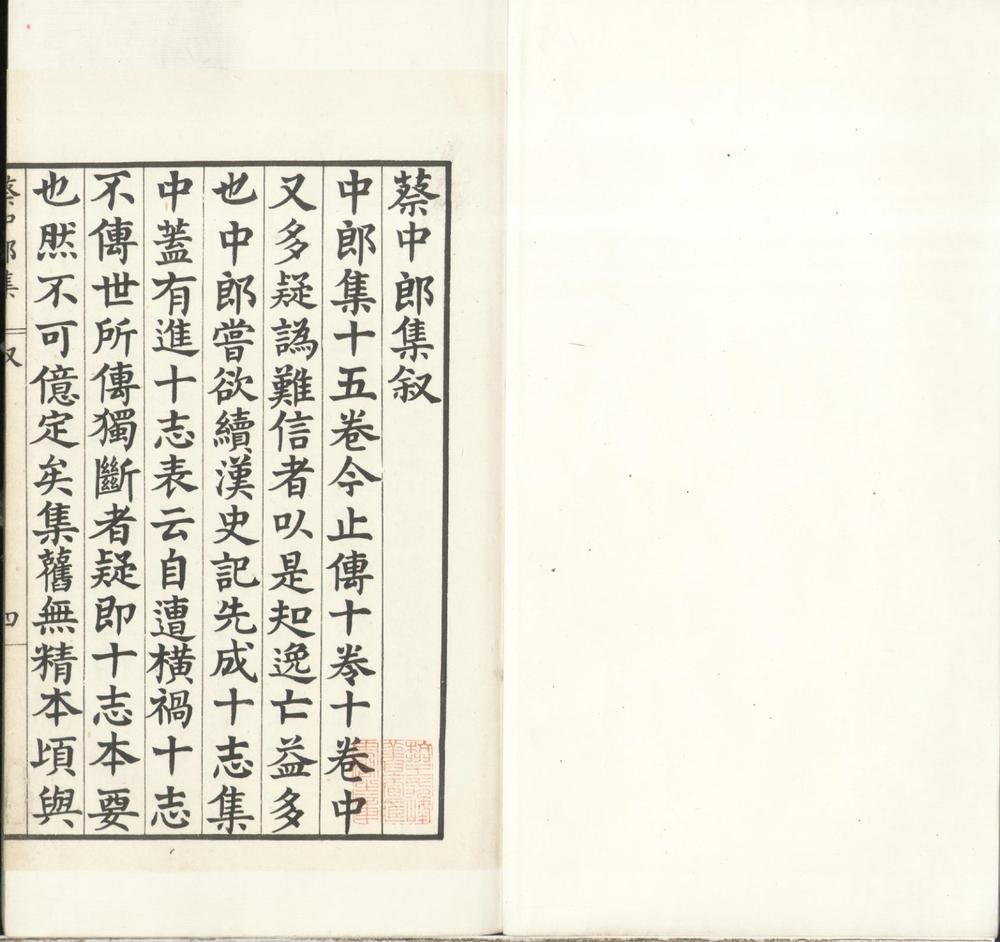 蔡中郎集叙
中郎集十五卷今止傳十卷十卷中
又多疑譌難信者以是知逸亡益多
也中郎嘗欲續漢史記先成十志集
中蓋有進十志表云自遭橫禍十志
不傳世所傳獨斷者疑即十志本要
也然不可億定矣集舊無精本頃與
蔡中郎集
叙
四